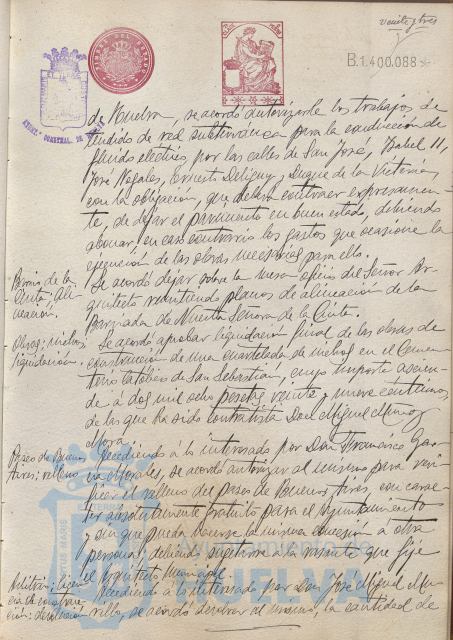 veinte y tres
B.1.400.088
de Huelva, se acordó autorizarle los trabajos de
tendido de red subterránea para la conducción de
fluido electrico, por las calles de San José, Isabel II,
José Nogales, Ernesto Deligny, Duque de la Victoria,
con la obligacion, que deberá contraer expresamen-
te, de dejar el pavimento en buen estado, debiendo
abonar en caso contrario los gastos que ocasione la
ejecución de las obras necesarias para ello.
Barrio de la
Cinta; Ali-
neación.
Se acordó dejar sobre la mesa oficio del Señor Ar-
quitecto remitiendo planos de alineación de la
Barriada de Nuestra Señora de la Cinta.
Obras; nichos;
liquidación.
Se acordó aprobar liquidación final de las obras de
construcción de una cuartelada de nichos en el Cemen-
terio Católico de San Sebastián, cuyo importe ascien-
de á dos mil ocho pesetas veinte y nueve centimos,
de las que ha sido contratista Don Miguel Muñoz
Mora.
Paseo de Buenos
Aires; relleno
Accediendo á lo interesado por Don Francisco Gar-
cia Morales, se acordó autorizar al mismo para veri-
ficar el relleno del paseo de Buenos Aires, con carac-
ter absolutamente gratuito para el Ayuntamiento
y sin que pueda hacerse la misma concesión á otra
persona, debiendo sujetarse á la rasante que fije
el Arquitecto Municipal.
Arbitrios; licen-
cia de construc-
ción; devolución
Accediendo á lo interesado por Don José Miguel
villo, se acordó devolver al mismo, la cantidad de
AYUNTAMIENTO
HUELVA
PORTUS MARIS